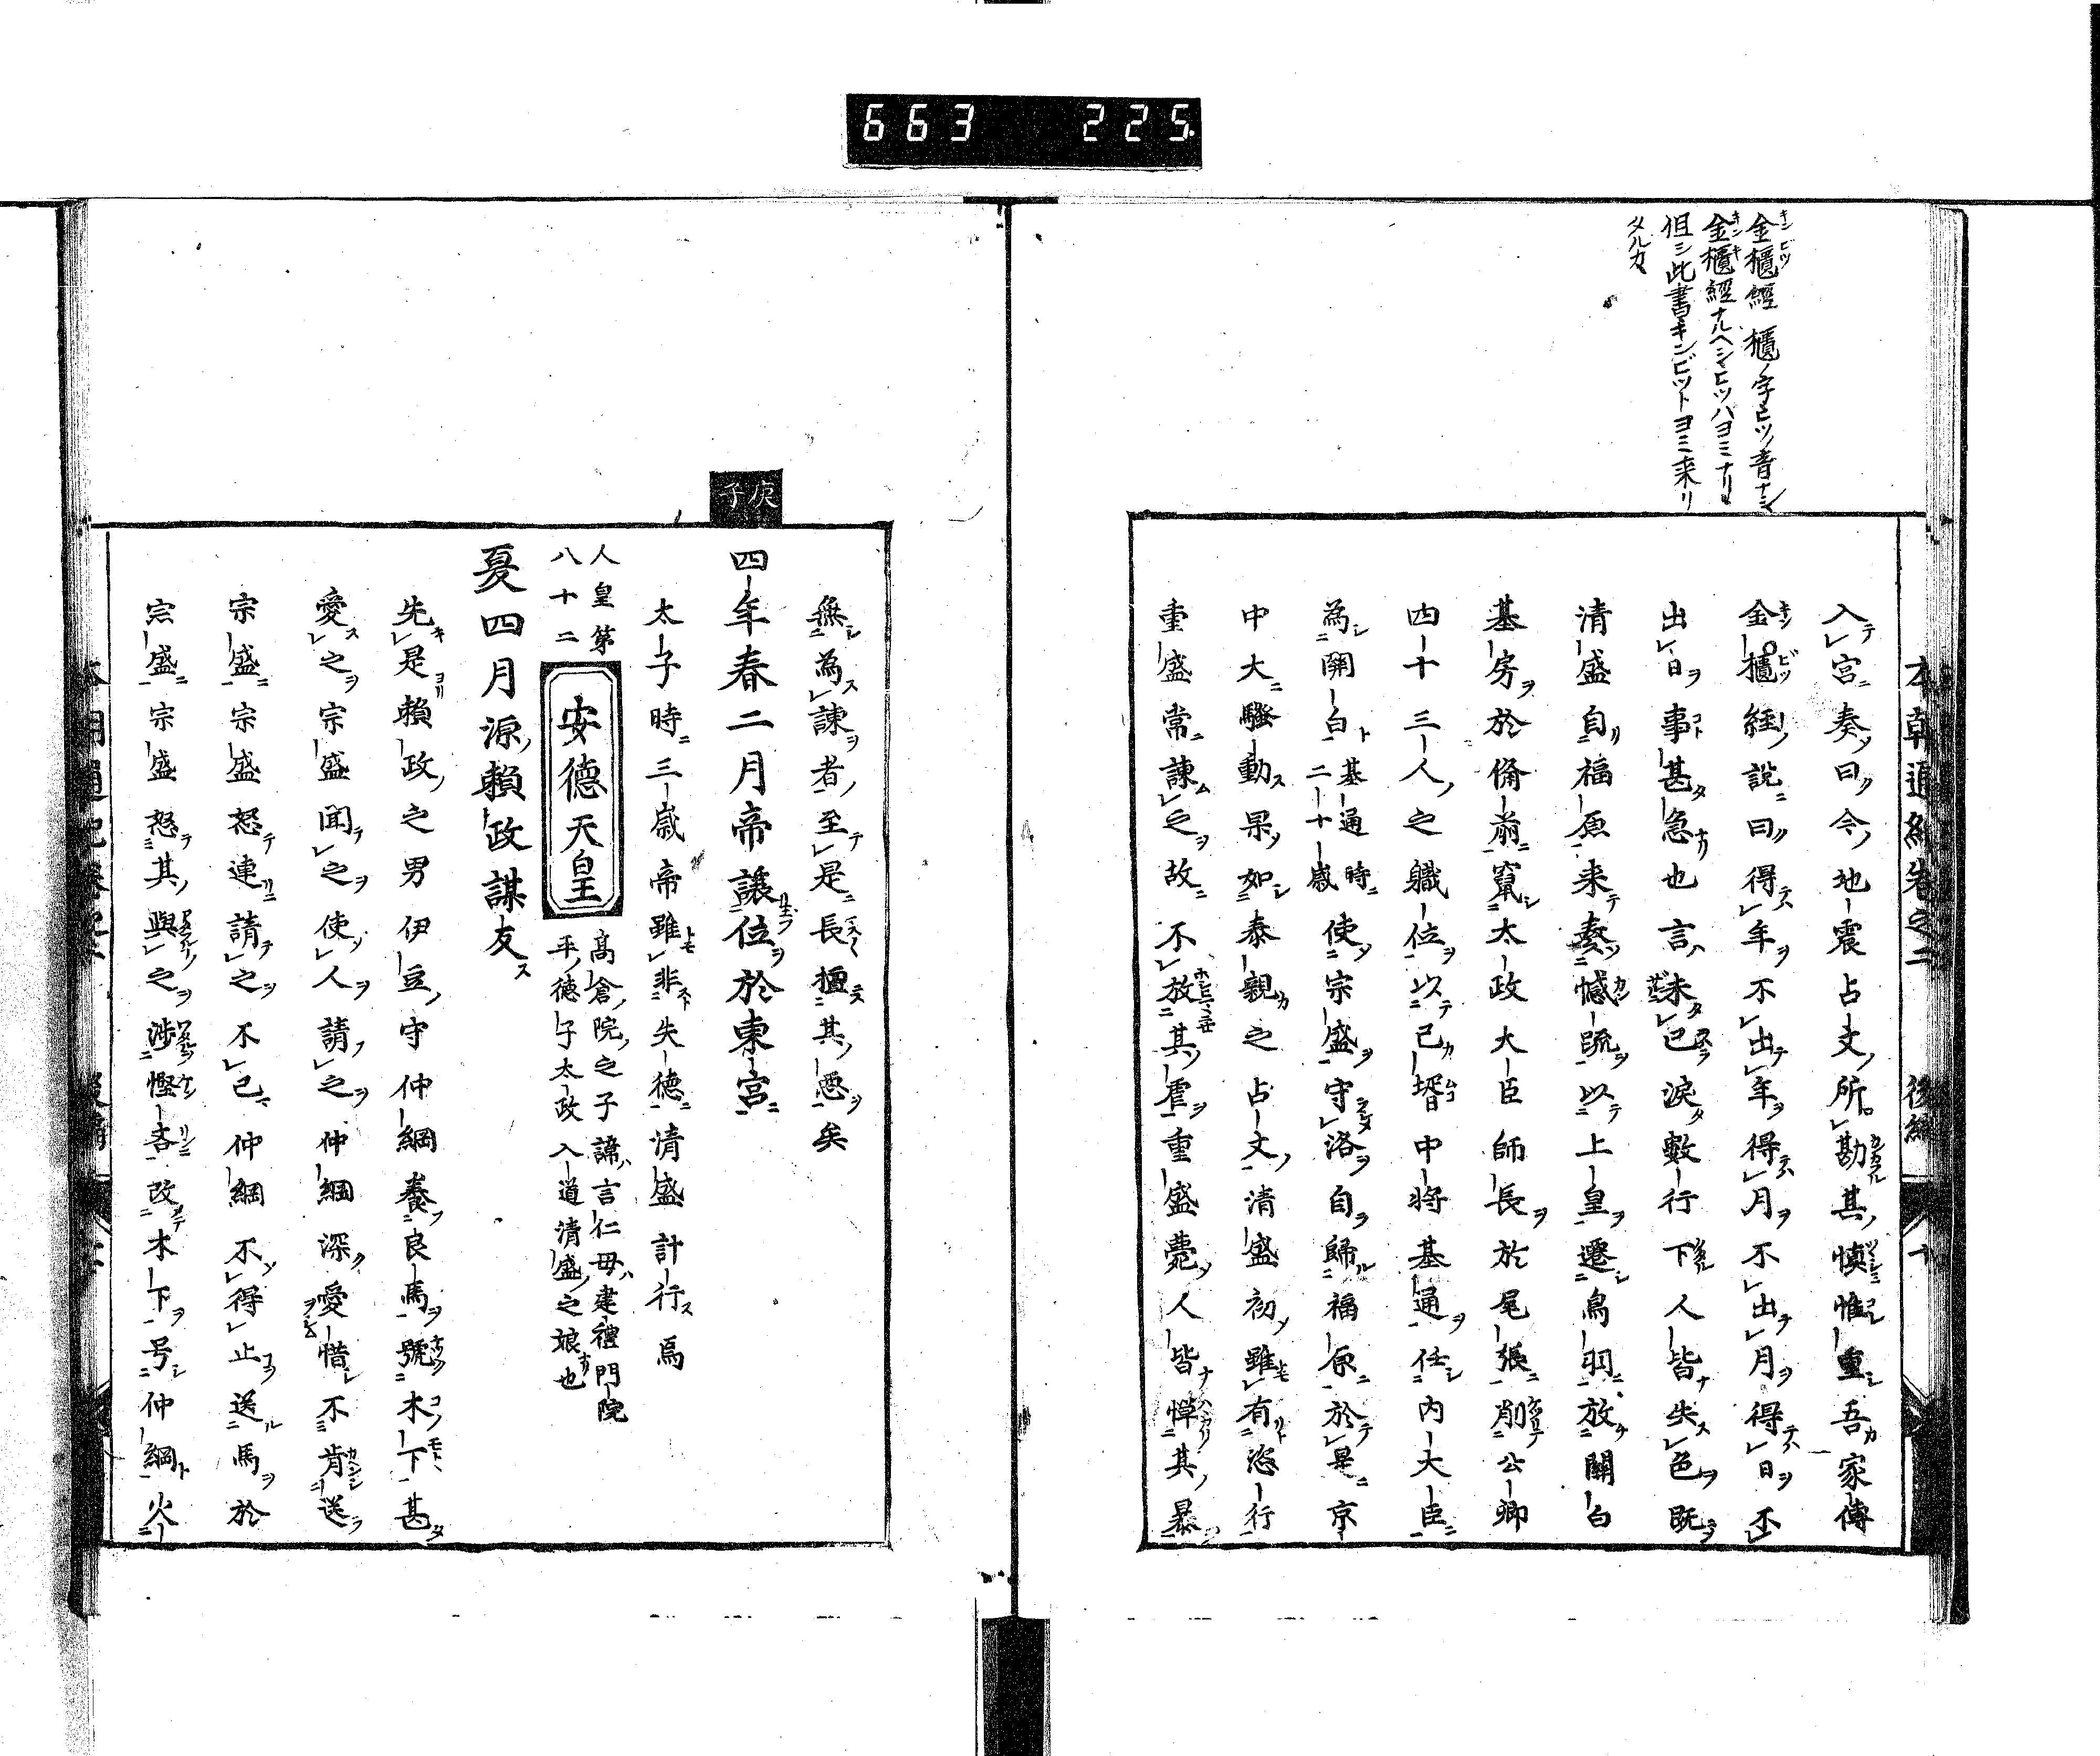 663 225.
金櫃經 櫃ノ字ヒツノ音ナシ
金櫃經ナルヘシヒツハヨミナリ
但シ此書キンビツトヨミ来リ
タルカ
入宮奏曰今地震占文所勘其慎惟重吾家傳
金櫃経説曰得年不出年得月不出月得日不
出日事甚急也言未已淚數行下人皆失色既
清盛自福原来奏憾疏以上皇遷鳥羽放關白
基房於備前竄太政大臣師長於尾張削公卿
四十三人之職位以己壻中将基通任内大臣
為関白基通時二十歳使宗盛守洛自歸福原於是京
中大騒動果如泰親之占文清盛初雖有恣行
重盛常諫之故不放其虐重盛薨人皆憚其暴
本朝通紀卷之二 後編 十
無為諫者至是長擅其悪矣
庚子
四年春二月帝譲位於東宮
太子時三歳帝雖非失徳清盛計行焉
人皇第八十二
安徳天皇
髙倉院之子諱言仁母建禮門院
平徳子太政入道清盛之娘也
夏四月源頼政謀友
先是頼政之男伊豆守仲綱養良馬號木下甚
愛之宗盛聞之使人請之仲綱深愛惜不肯送
宗盛宗盛怒連請之不已仲綱不得止送馬於
宗盛宗盛怒其與之渉慳吝改木下号仲綱火